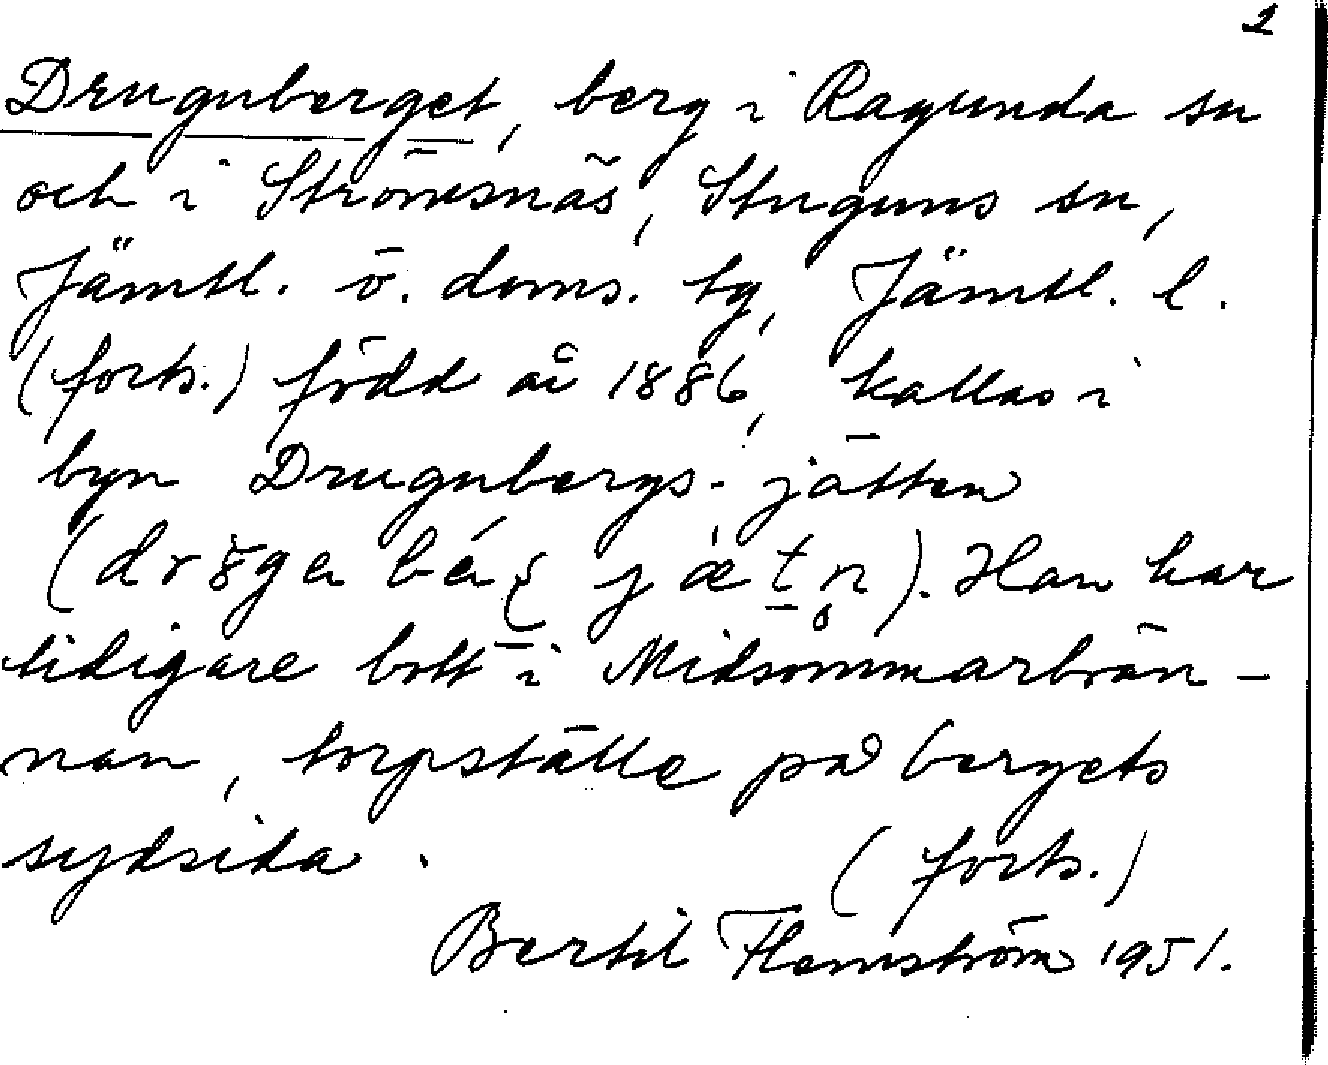 2
Drugnberget, berg i Ragunda sn
och i Strömsnäs, Stuguns sn,
Jämtl. ö. doms. tg, Jämtl. l.
(forts.) född år 1886, kallas i
byn Drugnbergs-jätten
Han har
tidigare bott i Midsommarbrän-
nan, torpställe på bergets
sydsida. (forts.)
Bertil Flemström 1951.